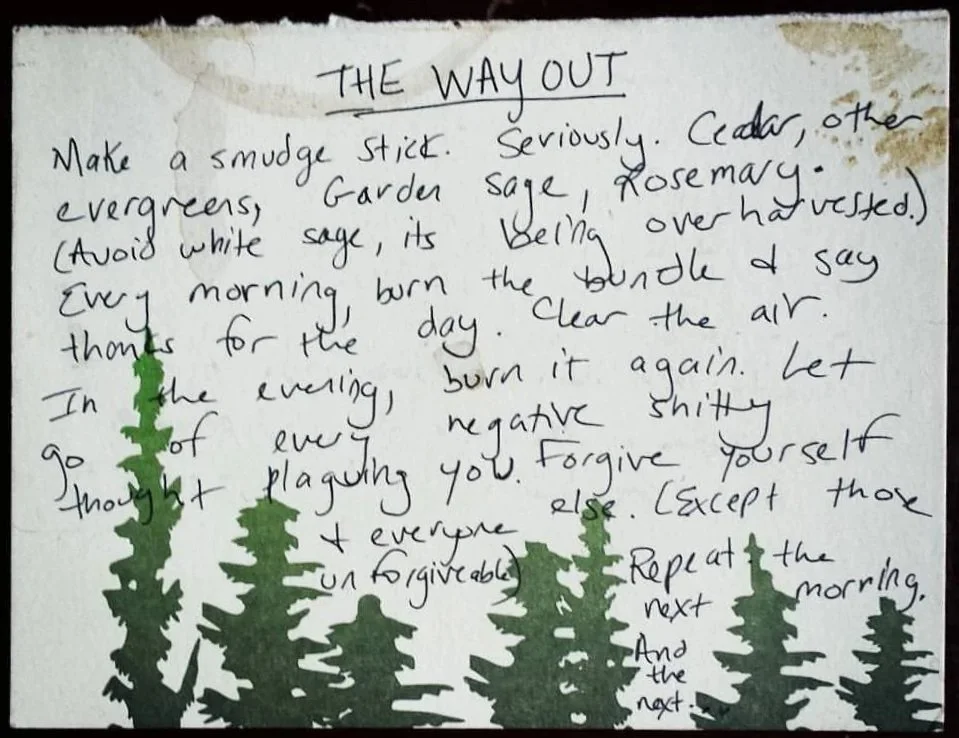 THE WAY OUT
Make a smudge stick. Seriously. Cedar, other
evergreens, Garden sage, Rosemary.
(Avoid white sage, its being over harvested.)
Every morning, burn the bundle & say
thanks for the day. Clear the air.
In the evening, burn it again. Let
go of every negative shitty
thought plaguing you. Forgive yourself
& everyone else. (Except those
unforgiveable)
Repeat the
next morning.
And
the
next....